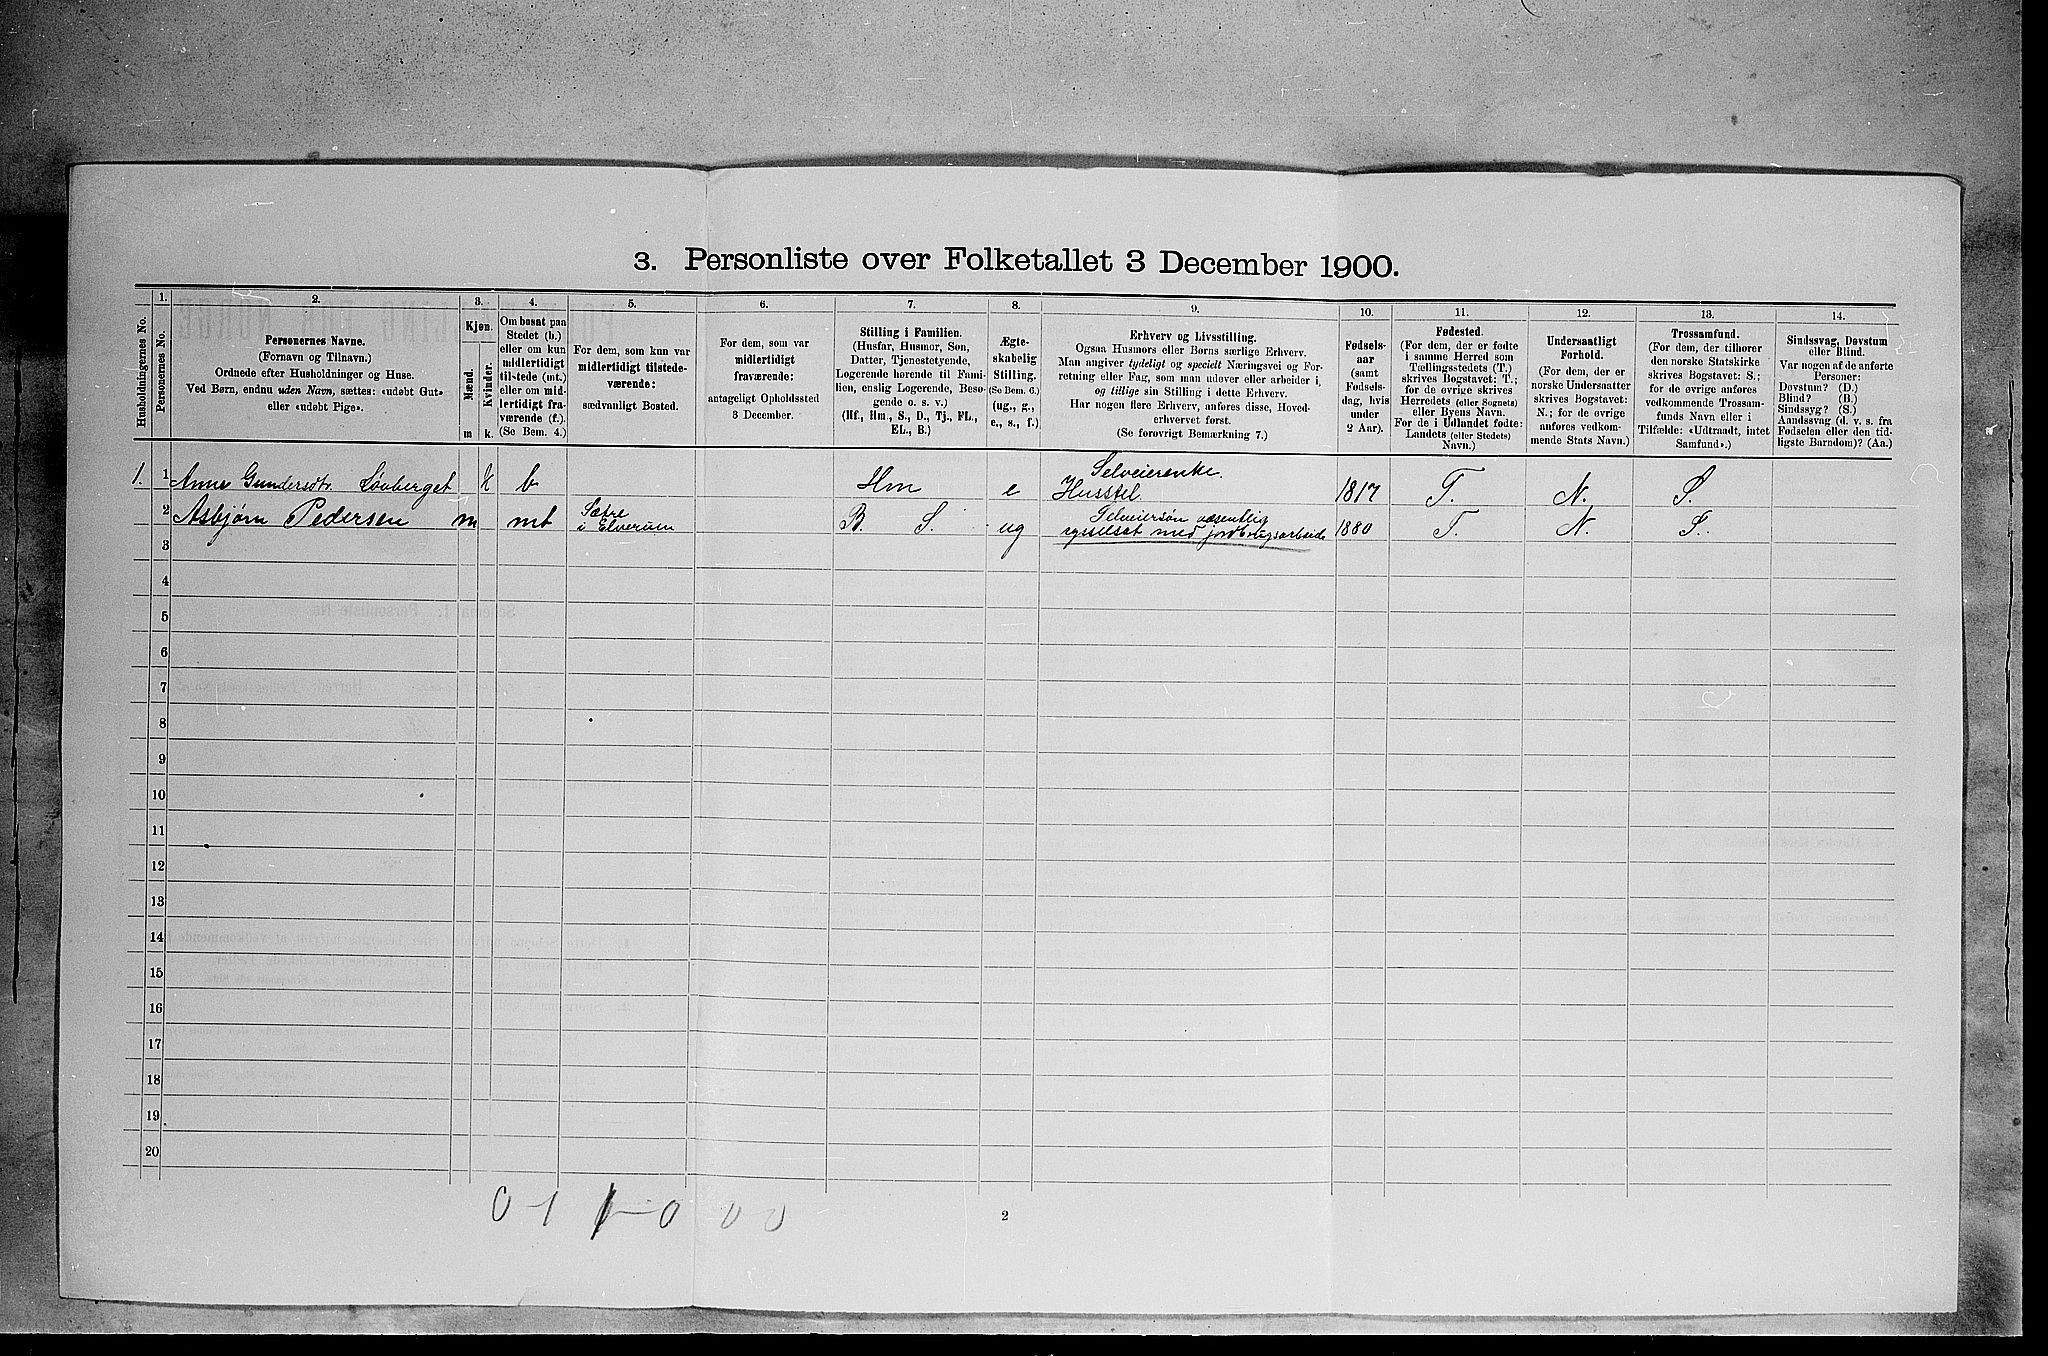 3. Personliste over Folketallet 3 December 1900.
Husholdningernes No.
1.
Personernes No.
2.
Personernes Navne.
(Fornavn og Tilnavn.)
Ordnede efter Husholdninger og Huse.
Ved Børn, endnu uden Navn, sættes: «udøbt Gut»
eller «udøbt Pige».
3.
Kjøn.
Mænd.
Kvinder.
m
k.
4.
Om bosat paa
Stedet (b.)
eller om kun
midlertidigt
tilstede (mt.)
eller om mid-
lertidigt fra-
værende (f.).
(Se Bem. 4.)
5.
For dem, som kun var
midlertidigt tilstede-
værende:
sædvanligt Bosted.
6.
For dem, som var
midlertidigt
fraværende:
antageligt Opholdssted
3 December.
7.
Stilling i Familien.
(Husfar, Husmor, Søn,
Datter, Tjenestetyende,
Logerende hørende til Fami-
lien, enslig Logerende, Besø-
gende o. s. v.)
(Hf., Hm., S., D., Tj., FL.,
EL., B.)
8.
Ægte-
skabelig
Stilling.
(Se Bem. 6.)
(ug., g.,
e., s., f.)
9.
Erhverv og Livsstilling.
Ogsaa Husmors eller Børns særlige Erhverv.
Man angiver tydeligt og specielt Næringsvei og For-
retning eller Fag, som man udøver eller arbeider i,
og tillige sin Stilling i dette Erhverv.
Har nogen flere Erhverv, anføres disse, Hoved-
erhvervet først.
(Se forøvrigt Bemærkning 7.)
10.
Fødsels-
aar
(samt
Fødsels-
dag, hvis
under
2 Aar).
11.
Fødested.
(For dem, der er fødte
i samme Herred som
Tællingsstedets (T.)
skrives Bogstavet: T.;
for de øvrige skrives
Herredets (eller Sognets)
eller Byens Navn.
For de i Udlandet fødte:
Landets (eller Stedets)
Navn.)
12.
Undersaatligt
Forhold.
(For dem, der er
norske Undersaatter
skrives Bogstavet:
N.; for de øvrige
anføres vedkom-
mende Stats Navn.)
13.
Trossamfund.
(For dem, der tilhører
den norske Statskirke
skrives Bogstavet: S.;
for de øvrige anføres
vedkommende Trossam-
funds Navn eller i
Tilfælde: «Udtraadt, intet
Samfund».)
14.
Sindssvag, Døvstum
eller Blind.
Var nogen af de anførte
Personer:
Døvstum? (D.)
Blind? (B.)
Sindssyg? (S.)
Aandssvag (d. v. s. fra
Fødselen eller den tid-
ligste Barndom)? (Aa.)
1. 1 Anne Gundersdtr. Løvberget k b Hm e Selveierenke. Husstel 1817 T. N. S.
2 Asbjørn Pedersen m mt Sætre i Elverum B. S. ug Selveiersøn væsentlig sysselsat med jordbrugsarbeide 1880 T. N. S.
3
4
5
6
7
8
9
10
11
12
13
14
15
16
17
18
19
20
0 - 1 1 - 0 0 0
2